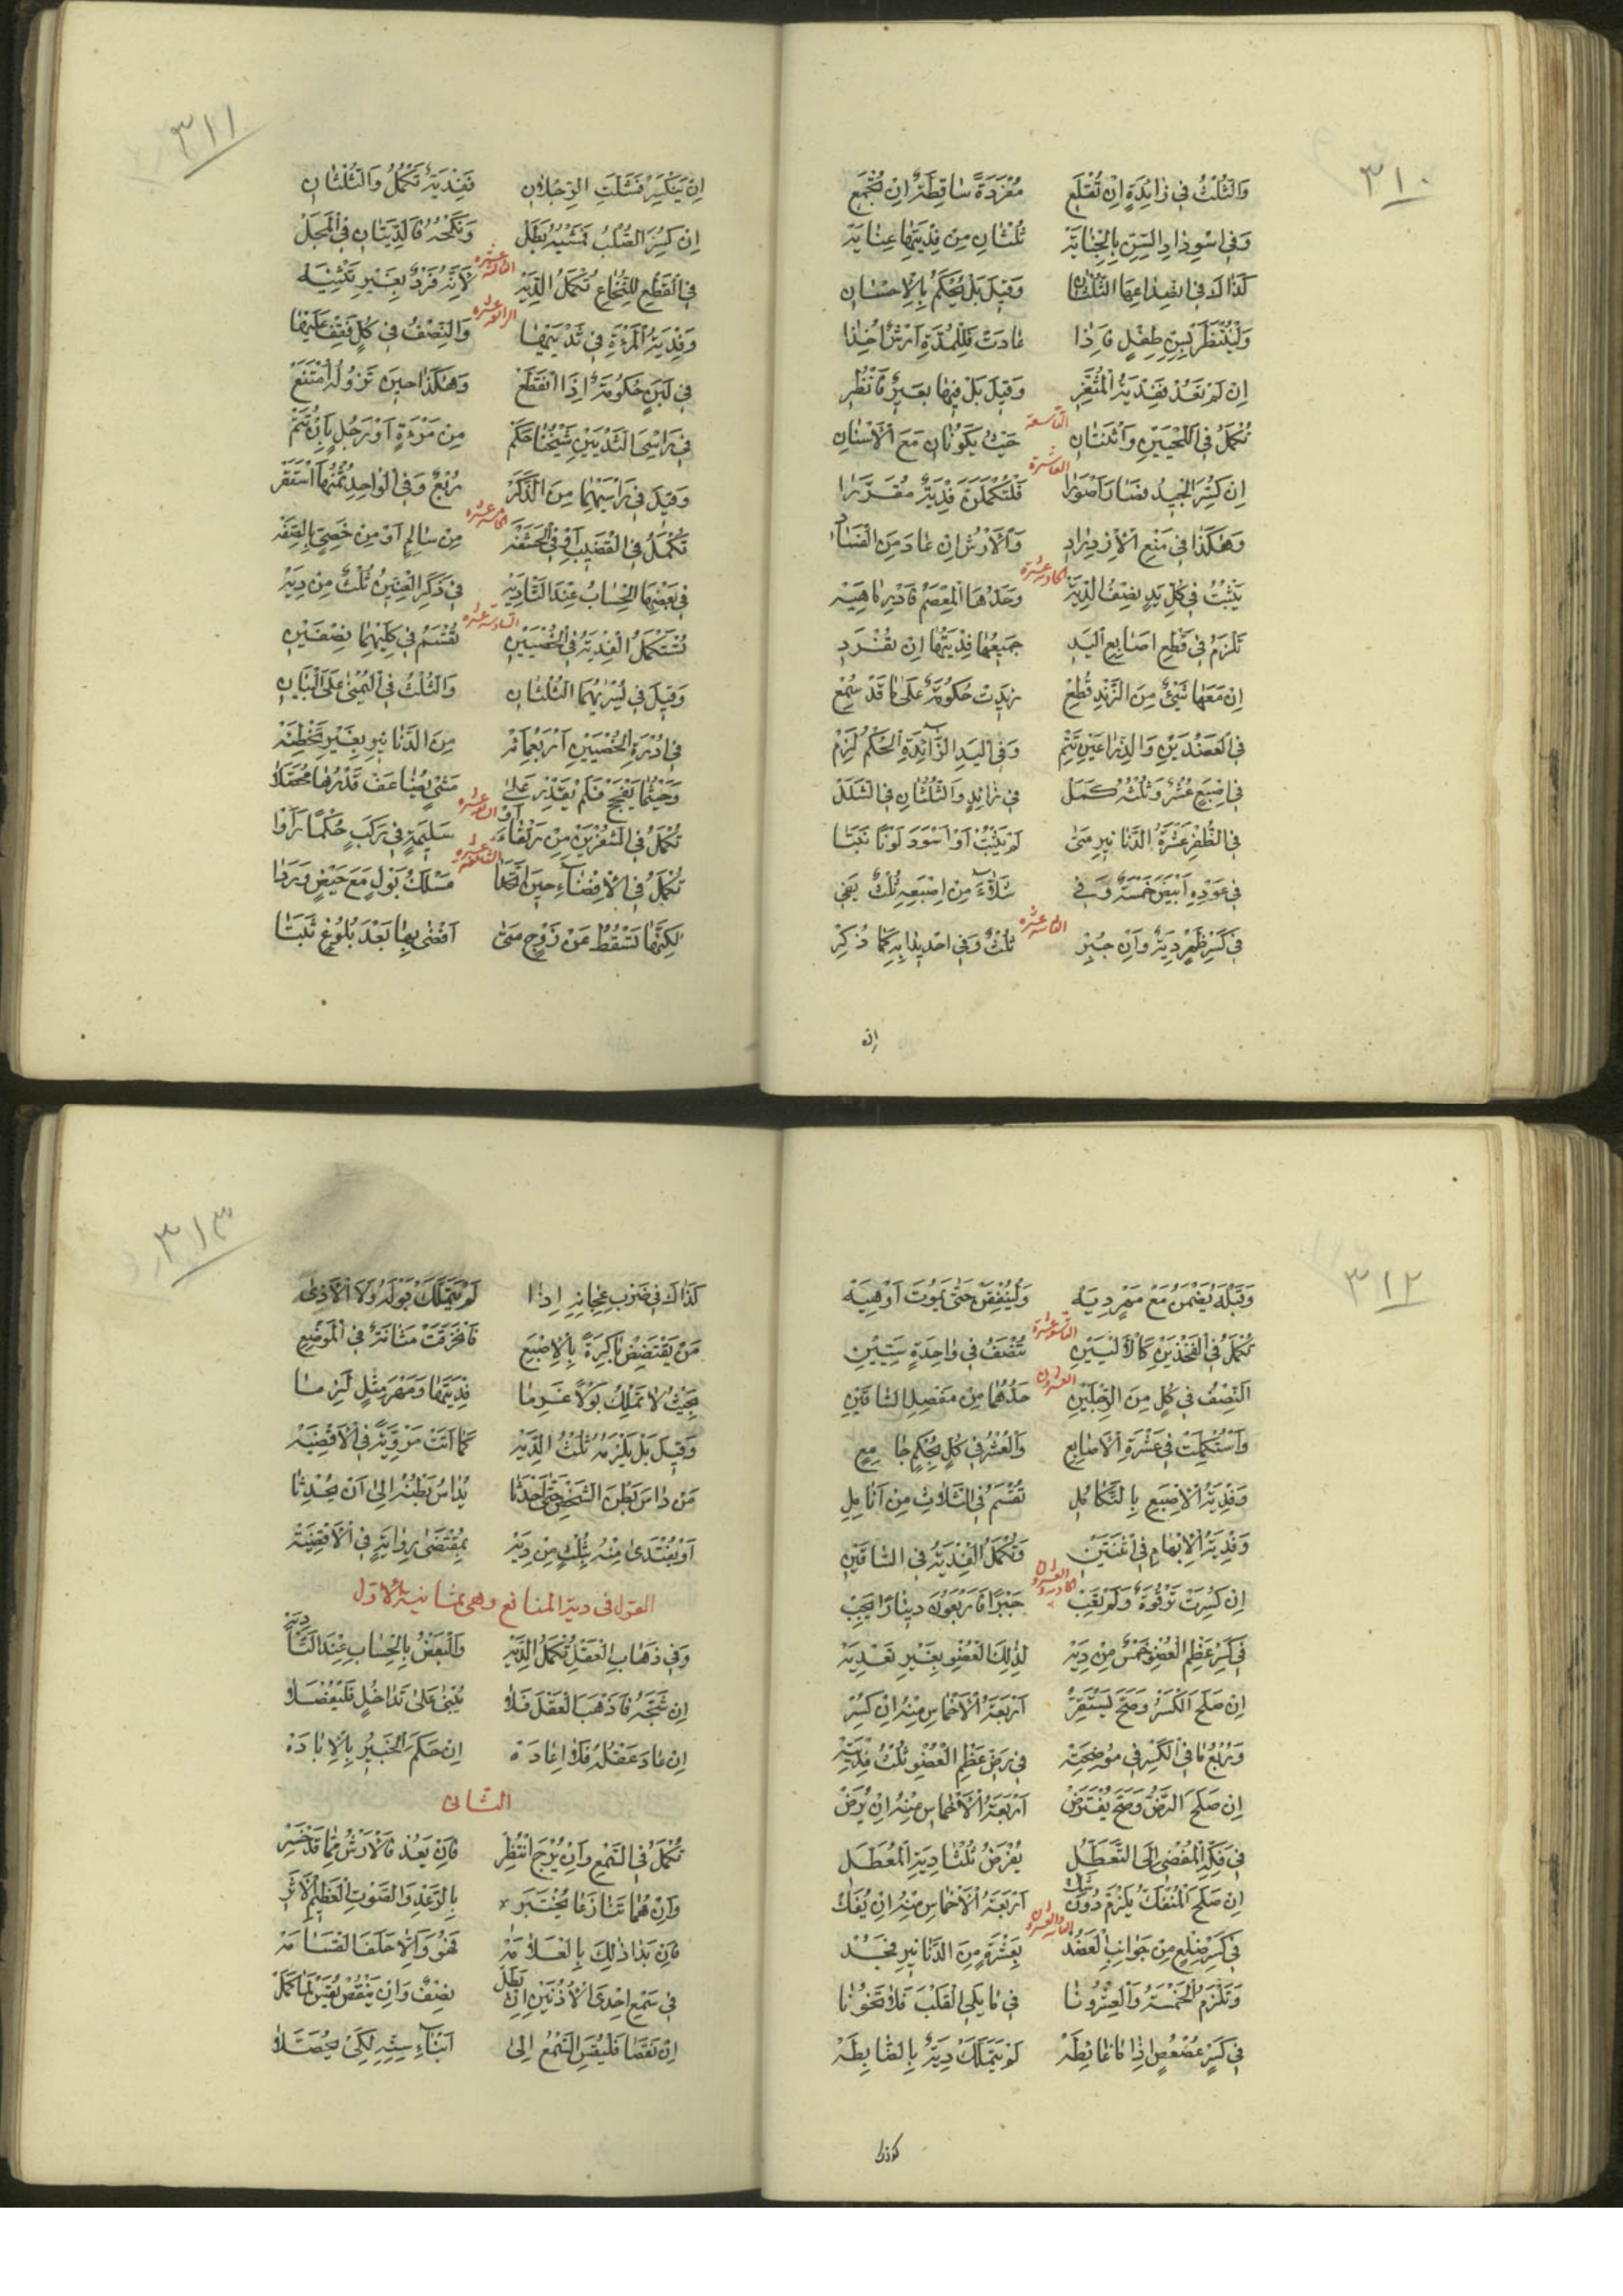 ٣١٠
وَالثُّلْثُ فِي زَائِدَةٍ اِنْ تُقْلَعِ مُفْرَدَةً سَاقِطَةٌ اِنْ تُجْمَعِ
وَفِي اسْوِدَادِ السِّنِّ بِالْجِنَايَةِ ثُلْثَانِ مِنْ فِدْيَتِهَا عِنَايَةً
كَذَاكَ فِي انْصِدَاعِهَا الثُّلْثَانِ وَقِيلَ بَلْ يُحْكَمُ بِالْاِحْسَانِ
وَلْيُنْتَظَرْ بِسِنِّ طِفْلٍ فَاِذَا عَادَتْ فَلِلْمُدَّةِ اَرْشٌ اُخِذَا
اِنْ لَمْ تَعُدْ فَفِدْيَةُ الْمُثَّغِرِ وَقِيلَ بَلْ فِيهَا بَعِيرٌ فَانْظُرِ
التاسعة
تُكْمَلُ فِي اللَّحْيَيْنِ وَاثْنَتَانِ حَيْثُ يَكُونَانِ مَعَ الْاَسْنَانِ
العاشرة
اِنْ كُسِرَ الْجِيدُ فَصَارَ اَصْوَرَا فَلْتُكْمَلَنْ فِدْيَةٌ مُقَرَّرَا
وَهٰكَذَا فِي مَنْعِ الْاِزْدِرَادِ وَالْاَرْشُ اِنْ عَادَ مِنَ الْفَسَادِ
الحادية عشرة
يَثْبُتُ فِي كُلِّ يَدٍ نِصْفُ الدِّيَةْ وَحَدُّهَا الْمِعْصَمُ فَادْرِ مَاهِيَهْ
تَلْزَمُ فِي قَطْعِ اَصَابِعِ الْيَدِ جَمِيعُهَا فِدْيَتُهَا اِنْ تُفْرَدِ
اِنْ مَعَهَا شَيْئٌ مِنَ الزَّنْدِ قُطِعْ زِيدَتْ حُكُومَةٌ عَلَى مَا قَدْ سُمِعْ
فِي الْعَضُدَيْنِ وَالذِّرَاعَيْنِ تَتِمّ وَفِي الْيَدِ الزَّائِدَةِ الْحُكْمُ لَزِمْ
فِي اِصْبَعٍ عُشْرٌ وَثُلْثُهُ كَمَلْ فِي زَائِدٍ وَالثُّلْثَانِ فِي الشَّلَلْ
فِي الظُّفْرِ عَشْرَةُ الدَّنَانِيرِ مَتَى لَمْ يَنْبُتْ اَوْ اَسْوَدَ لَوْنًا نَبَتَا
فِي عَوْدِهِ اَبْيَضَ خَمْسَةٌ وَفِي شَلَّاءَ مِنْ اِصْبَعِهِ ثُلْثٌ يَفِي
الثانية عشرة
فِي كَسْرِ ظَهْرٍ دِيَةٌ وَاِنْ جُبِرْ ثُلْثٌ وَفِي احْدِيدَابِهِ كَمَا ذُكِرْ
ان
٣١١
اِنْ يَنْكَسِرْ فَشَلَّتِ الرِّجْلَانِ فَفِدْيَةٌ تَكْمُلُ وَالثُّلْثَانِ
اِنْ كُسِرَ الصُّلْبُ فَمَشْيُهُ بَطَلْ وَنَكْحُهُ فَالدِّيَتَانِ فِي الْمَحَلّ
الثالثة عشرة
فِي الْقَطْعِ لِلنُّخَاعِ تُكْمَلُ الدِّيَهْ لِاَنَّهُ فَرْدٌ بِغَيْرِ تَثْنِيَهْ
الرابعة عشرة
وَفِدْيَةُ الْمَرْءَةِ فِي ثَدْيَيْهَا وَالنِّصْفُ فِي كُلٍّ فَقِفْ عَلَيْهَا
فِي لَبَنٍ حُكُومَةٌ اِذَا انْقَطَعْ وَهٰكَذَا حِينَ نُزُولُهُ امْتَنَعْ
فِي رَأْسَيِ الثَّدْيَيْنِ شَيْخُنَا حَكَمْ مِنْ مَرْءَةٍ اَوْ رَجُلٍ بِاَنْ تُتَمّ
وَقِيلَ فِي رَاْسَيْهِمَا مِنَ الذَّكَرْ رُبْعٌ وَفِي الْوَاحِدِ ثُمْنُهَا اسْتَقَرّ
الخامسة عشرة
تُكْمَلُ فِي الْقَضِيبِ اَوْ فِي الْحَشَفَهْ مِنْ سَالِمٍ اَوْ مِنْ خَصِيٍّ بِالصِّفَهْ
فِي بَعْضِهَا الْحِسَابُ عِنْدَ التَّأْدِيَهْ فِي ذَكَرِ الْعِنِّينِ ثُلْثٌ مِنْ دِيَهْ
السادسة عشرة
تُسْتَكْمَلُ الْفِدْيَةُ فِي الْخُصْيَيْنِ تُقْسَمُ فِي كِلَيْهِمَا نِصْفَيْنِ
وَقِيلَ فِي يُسْرَيْهِمَا الثُّلْثَانِ وَالثُّلْثُ فِي الْيُمْنَى عَلَى الْبَيَانِ
فِي اُدْرَةِ الْخُصْيَيْنِ اَرْبَعُمِائَهْ مِنَ الدَّنَانِيرِ بِغَيْرِ تَخْطِئَهْ
وَحَيْثُمَا يَفْحَجْ فَلَمْ يَقْدِرْ عَلَى مَشْيٍ يُضَاعَفْ قَدْرُهَا مُحَصَّلًا
السابعة عشرة
تُكْمَلُ فِي الشُّفْرَيْنِ مِنْ رَتْقَاءَ اَوْ سَلِيمَةٍ فِي رَكَبٍ حُكْمًا رَاَوْا
الثامنة عشرة
تُكْمَلُ فِي الْاِفْضَاءِ حِينَ اتَّحَدَا مَسْلَكُ بَوْلٍ مَعَ حَيْضٍ وَرَدَا
لٰكِنَّهَا تَسْقُطُ عَنْ زَوْجٍ مَتَى اَفْضَى بِهَا بَعْدَ بُلُوغٍ ثَبَتَا
٣١٢
وَقَبْلَهُ يُضْمَنُ مَعْ مَهْرٍ دِيَهْ وَلْيُنْفِقَنْ حَتَّى يَمُوتَ اَوْ هِيَهْ
التاسعة عشرة
تُكْمَلُ فِي الْفَخْذَيْنِ كَالْاَلْيَيْنِ تُنْصَفُ فِي وَاحِدَةٍ سِيَّيْنِ
العشرون
اَلنِّصْفُ فِي كُلٍّ مِنَ الرِّجْلَيْنِ حَدُّهُمَا مِنْ مَفْصِلِ السَّاقَيْنِ
وَاسْتُكْمِلَتْ فِي عَشْرَةِ الْاَصَابِعِ وَالْعُشْرُ فِي كُلٍّ بِحُكْمٍ جَامِعِ
وَفِدْيَةُ الْاِصْبَعِ بِالتَّكَامُلِ تُقْسَمُ فِي الثَّلَاثِ مِنْ اَنَامِلِ
وَفِدْيَةُ الْاِبْهَامِ فِي اثْنَتَيْنِ وَتُكْمَلُ الْفِدْيَةُ فِي السَّاقَيْنِ
الحادية والعشرون
اِنْ كُسِرَتْ تَرْقُوَةٌ وَلَمْ تَعِبْ جَبْرًا فَاَرْبَعُونَ دِينَارًا يَجِبْ
فِي كَسْرِ عَظْمِ الْعُضْوِ خُمْسٌ مِنْ دِيَهْ لِذٰلِكَ الْعُضْوِ بِغَيْرِ تَعْدِيَهْ
اِنْ صَلَحَ الْكَسْرُ وَصَحَّ يَسْتَقِرّ اَرْبَعَةُ الْاَخْمَاسِ مِنْهُ اِنْ كُسِرْ
وَرُبْعُ مَا فِي الْكَسْرِ فِي مُوضِحَتِهْ فِي رَضِّ عَظْمِ الْعُضْوِ ثُلْثُ فِدْيَتِهْ
اِنْ صَلَحَ الرَّضُّ وَصَحَّ يُفْتَرَضْ اَرْبَعَةُ الْاَخْمَاسِ مِنْهُ اِنْ يُرَضّ
فِي فَكِّهِ الْمُفْضِي اِلَى التَّعَطُّلِ يُفْرَضُ ثُلْثَا دِيَةِ الْمُعَطَّلِ
اِنْ صَلَحَ الْمُنْفَكُّ يَلْزَمْ دُونَ شَكّ اَرْبَعَةُ الْاَخْمَاسِ مِنْهُ اِنْ يُفَكّ
الثانية والعشرون
فِي كَسْرِ ضِلْعٍ مِنْ جَوَانِبِ الْعَضُدْ بِعَشْرَةٍ مِنَ الدَّنَانِيرِ فَجُدْ
وَتَلْزَمُ الْخَمْسَةُ وَالْعِشْرُونَا فِي مَا يَلِي الْقَلْبَ فَلَا تَخُونَا
فِي كَسْرِ عُصْعُصٍ اِذَا مَا غَائِطَهْ لَمْ يَتَمَلَّكْ دِيَةٌ بِالضَّابِطَهْ
كذاك
٣١٣
كَذَاكَ فِي ضَرْبِ عِجَانِهِ اِذَا لَمْ يَتَمَلَّكْ بَوْلَهُ وَلَا الْاَذَى
مَنْ يَفْتَضِضْ بَاكِرَةً بِالْاِصْبَعِ فَانْخَرَقَتْ مَثَانَةٌ فِي الْمَوْضِعِ
بِحَيْثُ لَا تَمْلِكُ بَوْلًا غَرِمَا فِدْيَتَهَا وَمَهْرَ مِثْلٍ لَزِمَا
وَقِيلَ بَلْ يَلْزَمُهُ ثُلْثُ الدِّيَهْ كَمَا اَتَتْ مَرْوِيَّةً فِي الْاَقْضِيَهْ
مَنْ دَاسَ بَطْنَ الشَّخْصِ حَتَّى اَحْدَثَا يُدَاسُ بَطْنُهُ اِلَى اَنْ يُحْدِثَا
اَوْ يُفْتَدَى مِنْهُ بِثُلْثٍ مِنْ دِيَهْ بِمُقْتَضَى رِوَايَةٍ فِي الْاَقْضِيَهْ
القول في دية المنافع وهي ثمانية الاول
وَفِي ذَهَابِ الْعَقْلِ تُكْمَلُ الدِّيَهْ وَالْبَعْضُ بِالْحِسَابِ عِنْدَ التَّأْدِيَهْ
اِنْ شَجَّهُ فَاَذْهَبَ الْعَقْلَ فَلَا يُبْنَى عَلَى تَدَاخُلٍ فَلْيَفْضُلَا
اِنْ عَادَ عَقْلُهُ فَلَا اِعَادَهْ اِنْ حَكَمَ الْخَبِيرُ بِالْاِبَادَهْ
الثاني
تُكْمَلُ فِي السَّمْعِ وَاِنْ يُرْجَ انْتُظِرْ فَاِنْ يَعُدْ فَالْاَرْشُ مِمَّا قَدْ خَسِرْ
وَاِنْ هُمَا تَنَازَعَا يُخْتَبَرُ بِالرَّعْدِ وَالصَّوْتِ الْعَظِيمِ الْاَثَرُ
فَاِنْ بَدَا ذٰلِكَ بِالْعَلَامَهْ فَهُوَ وَاِلَّا حَلَفَا الْقَسَامَهْ
فِي سَمْعِ اِحْدَى الْاُذْنَيْنِ اِنْ بَطَلْ نِصْفٌ وَاِنْ يَنْقُصْ يُقَسْ لِمَا كَمَلْ
اِنْ نَقَصَا فَلْيُقَسِ السَّمْعُ اِلَى اَبْنَاءِ سِنِّهِ لِكَيْ يُحَصَّلَا